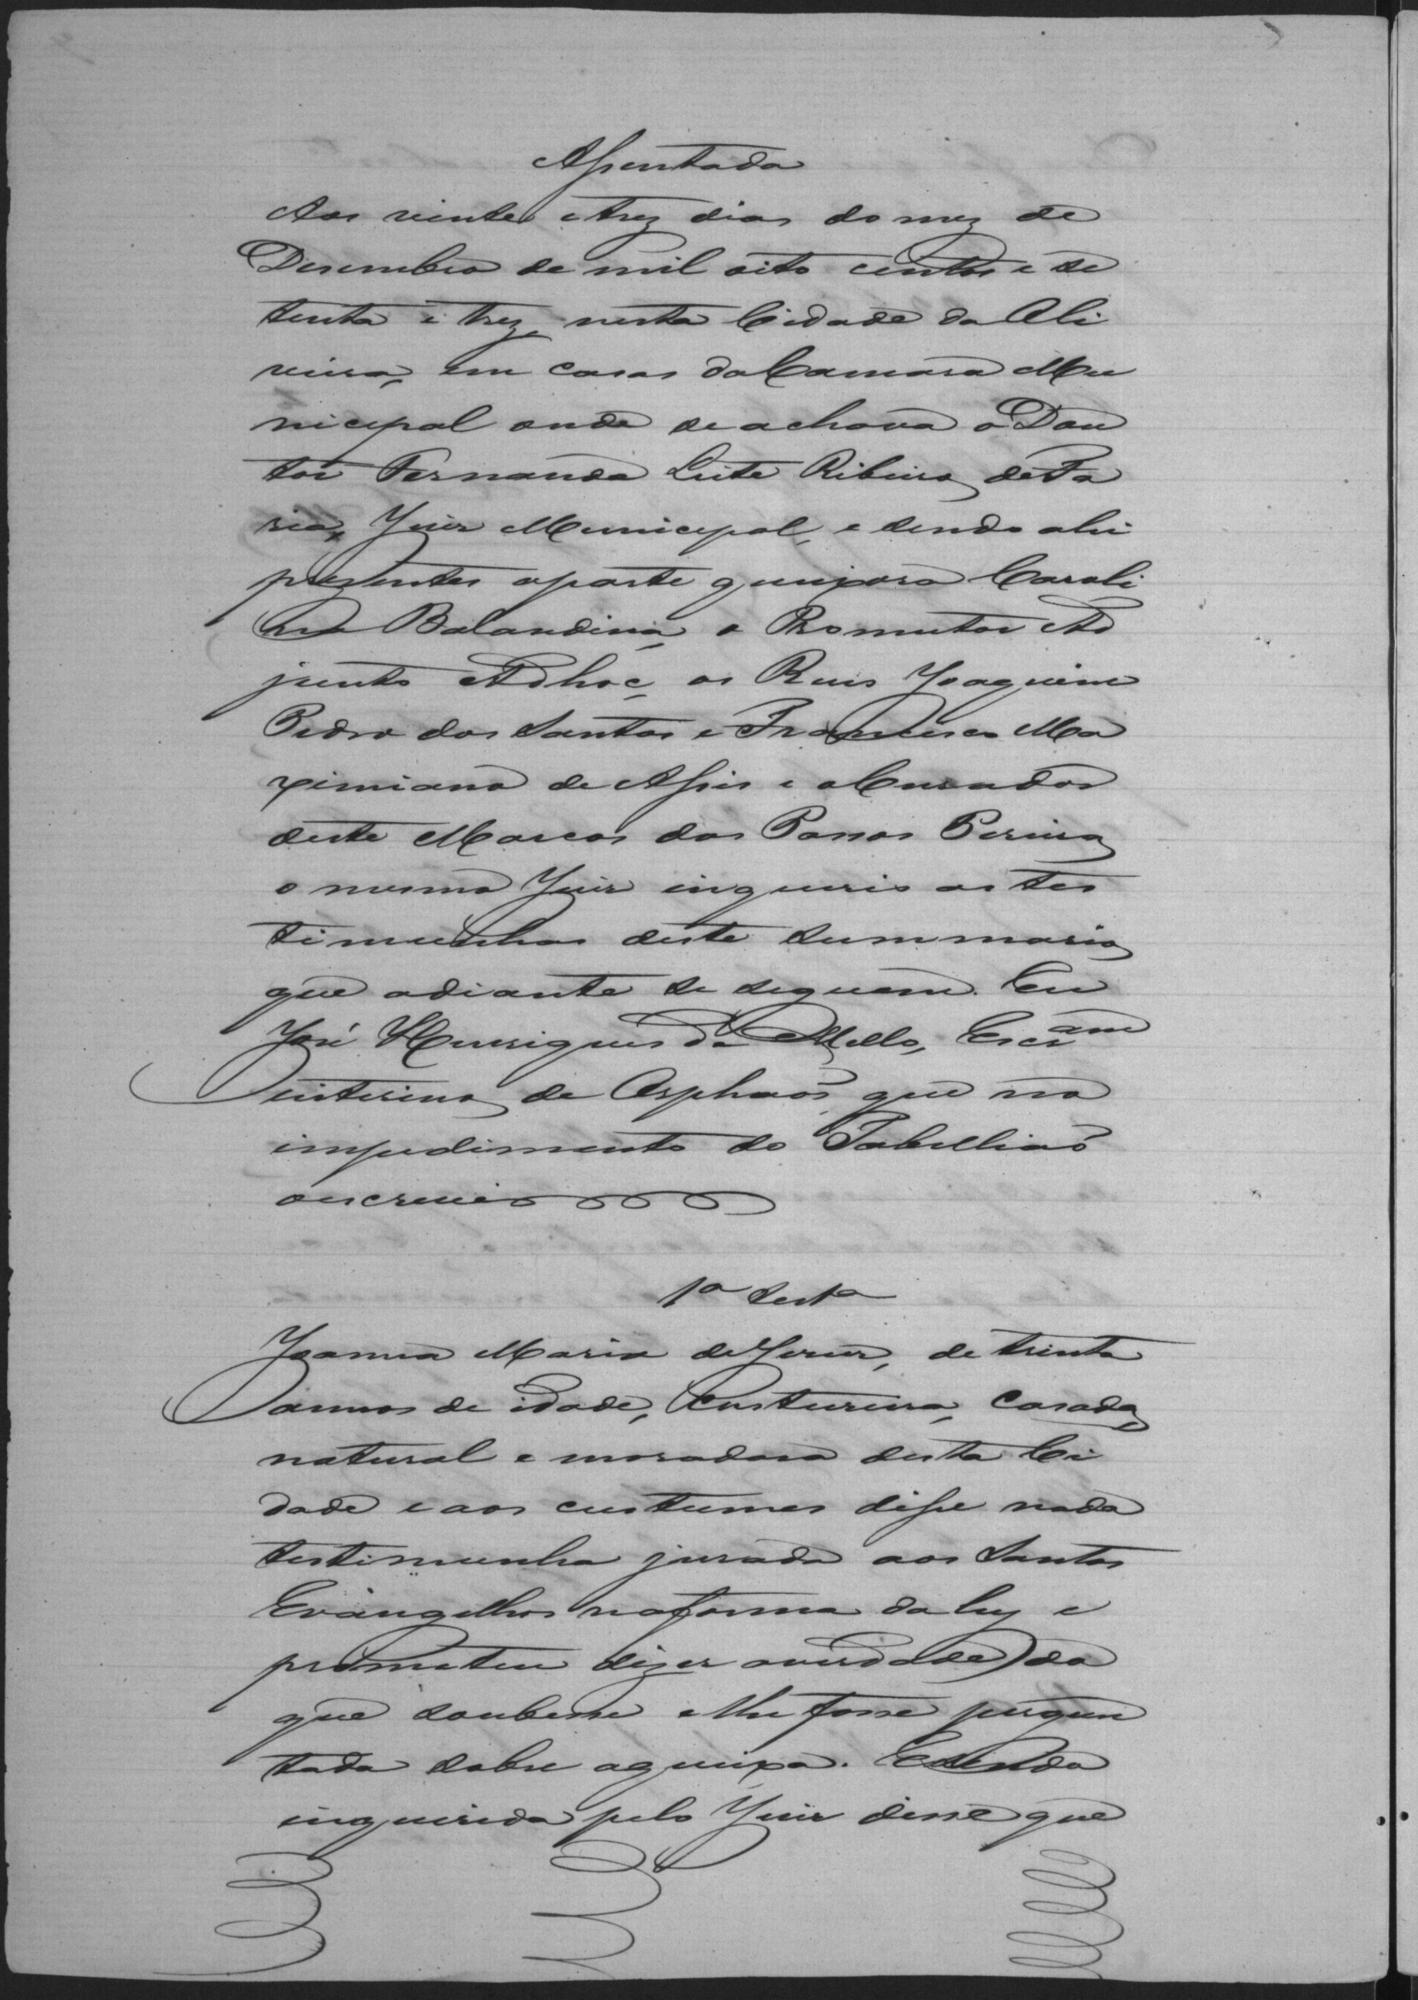 Assentada
Aos vinte e trez dias do mez de
Desembro de mil oito centos e se
tenta e trez, nesta Cidade da Oli
veira, em casas da Camara Mu
nicipal onde se achava o Dou
tor Fernando Leite Ribeiro de Fa
ria, Juiz Municipal, e sendo ahi
prezentes a parte queixosa Caroli
na Balandina, o Promutor Ad
junto Adhoc, os Reus Joaquim
Pedro dos Santos e Francisco Ma
ximiano de Assis e o Curador
deste Marcos dos Passos Pereira
o mesmo Juiz inquerio as tes
timunhas deste summario
que adiante se seguem. Eu
José Henriques da Mello, Escram
interino de Orphaõs que no
impedimento do Tabelliaõ
o escrevi
1a testa
Joanna Maria de Jesus, de trinta
annos de idade, custureira, casada,
natural e moradora desta Ci
dade e aos custumes disse nada
testimunha jurada aos Santos
Evangelhos na forma da ley e
prometeu dizer a verdade do
que soubesse e lhe fosse pergun
tado sobre a queixa. E sendo
inquerida pelo Juiz disse que